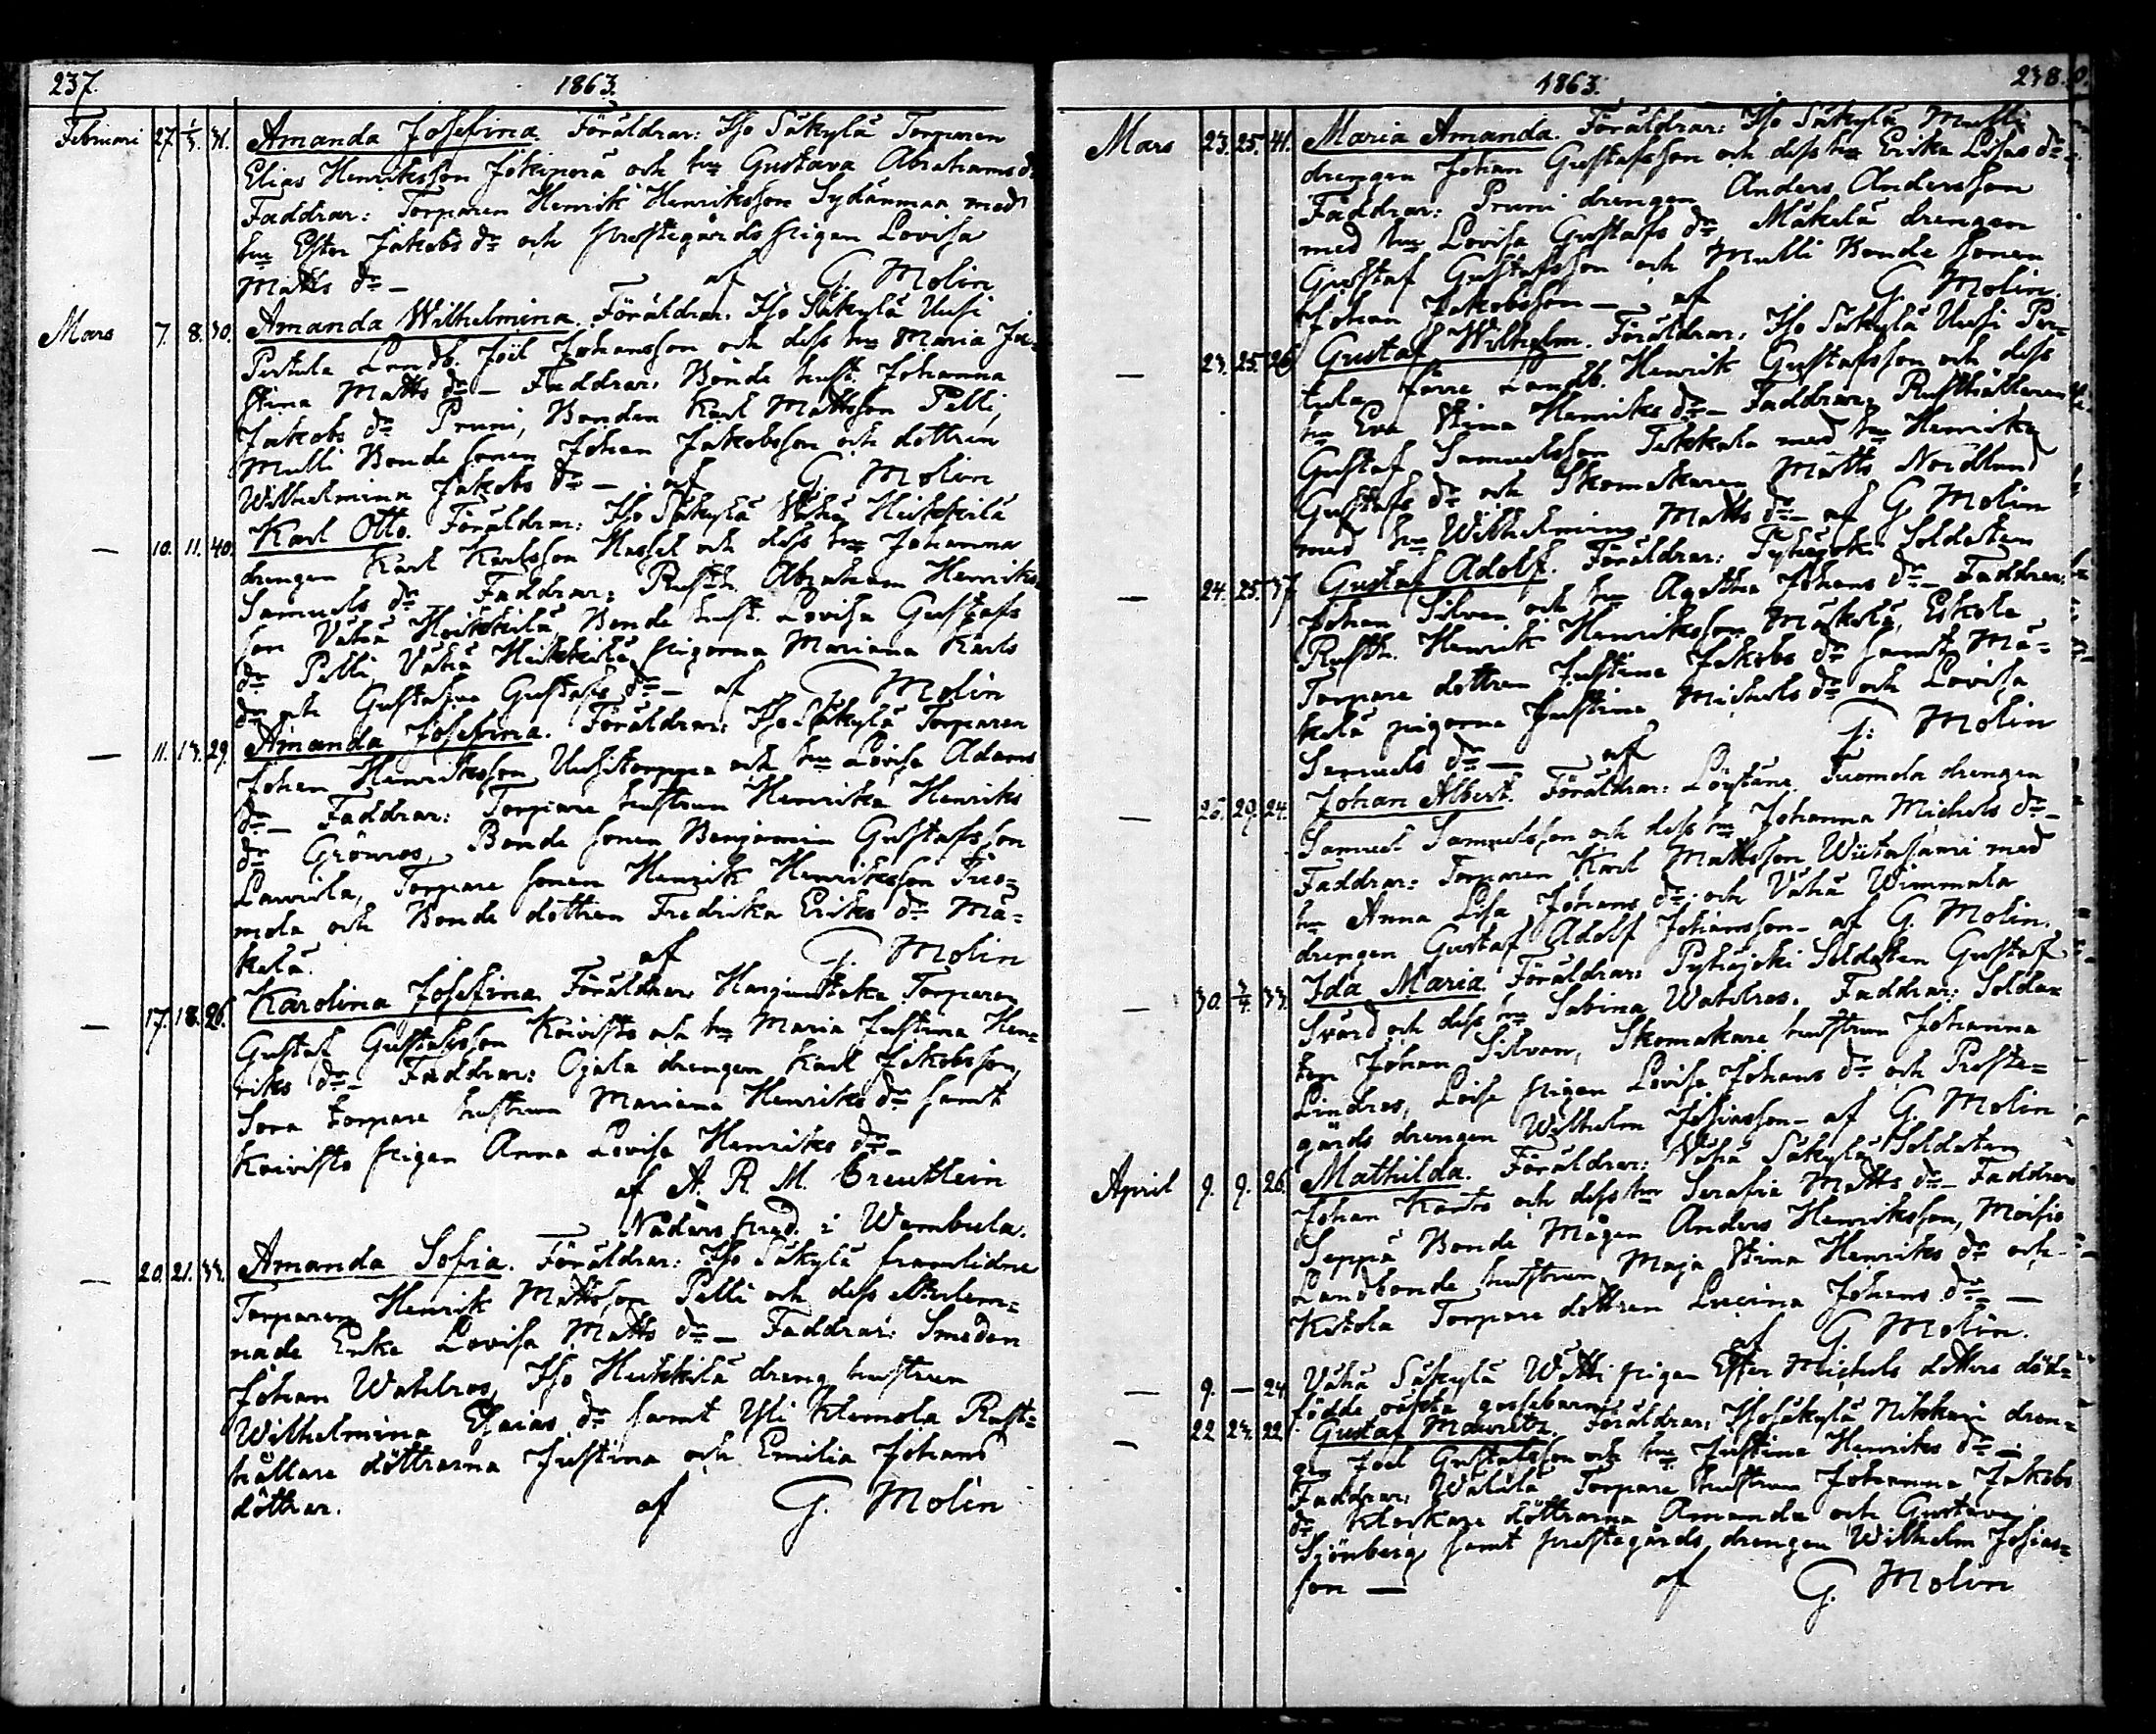 237. 1863.
Februari 27. 1/3. 31. Amanda Josefina. Föräldrar: Iso Säkylä Torparen
Elias Henriksson Jokipora och hu Gustava Abrahams dr
Faddrar: Torparen Henrik Henriksson Sydänmaa med
hu Ester Jakobs dr och prestegårds pigan Lovisa
Matts dr — af G. Molin
Mars 7. 8. 30. Amanda Wilhelmina. Föräldrar: Iso Säkylä Uusi
Pertula Landb. Joël Johansson och dess hu Maria Ju-
stina Matts dr — Faddrar: Bonde hust. Johanna
Jakobs dr Pruni, Bonden Karl Mattsson Pelli,
Mulli Bonde sonen Johan Jakobsson och dottren
Wilhelmina Jakobs dr — af G. Molin
— 10. 11. 40. Karl Otto. Föräldrar: Iso Säkylä Vähä Heikkilä
drengen Karl Karlsson Hassel och dess hu Johanna
Samuels dr Faddrar: Rusth. Abraham Henriks-
son Vähä Heikkilä, Bonde hust. Lovisa Gustafs
dr Pelli, Vähä Heikkilä pigorna Mariana Karls
dr och Gustafva Gustafs dr — af G Molin
— 11. 13. 29. Amanda Josefina. Föräldrar: Iso Säkylä Torparen
Johan Henriksson Uusitorppa och hu Lovisa Adams
dr — Faddrar: Torpare hustrun Henrika Henriks
dr Grönros, Bonde sonen Benjamin Gustafsson
Laurila, Torpare sonen Henrik Henriksson Tuo-
mola och Bonde dottren Fredrika Eriks dr Mä-
kelä. af G. Molin
— 17. 18. 26. Karolina Josefina. Föräldrar: Torparen
Gustaf Gustafsson Koivisto och hu Maria Justina Hen-
riks dr — Faddrar: Ojala drengen Karl Jakobsson,
Sora torpare hustrun Mariana Henriks dr samt
Koivisto pigan Anna Lovisa Henriks dr —
af A. R. M. Creutlein
— Nåders pred. i Wambula.
— 20. 21. 33. Amanda Sofia. Föräldrar: Iso Säkylä framlidne
Torparen Henrik Mattsson Pelli och dess efterlem-
nade Enka Lovisa Matts dr — Faddrar: Smeden
Johan Wahlros, Iso Heikkilä dreng hustrun
Wilhelmina Esaias dr samt Yli Klemola Rust-
hållare döttrarna Justina och Emilia Johans
döttrar. af G. Molin
1863. 238.
Mars 23. 25. 41. Maria Amanda. Föräldrar: Iso Säkylä Mulli
drengen Johan Gustafsson och dess hu Erika Lisas dr —
Faddrar: Pruni drengen Anders Andersson
med hu Lovisa Gustafs dr Mäkelä drengen
Gustaf Gustafsson och Mulli Bonde sonen
Johan Jakobsson — af G. Molin.
— 23. 25. 26 Gustaf Wilhelm. Föräldrar: Iso Säkylä Uusi Per-
tula förre Landb. Henrik Gustafsson och dess
hu Eva Stina Henriks dr — Faddrar: Rusthållaren
Gustaf Samuelsson Tekkala med hu Henrika
Gustafs dr och Skomakaren Matts Nordlund
med hu Wilhelmina Matts dr — af G. Molin
— 24. 25. 37 Gustaf Adolf. Föräldrar: Pyhäjoki Soldaten
Johan Silvan och hu Agatha Johans dr — Faddrar:
Rusth. Henrik Henriksson Mäkelä, Eskola
Torpare dottren Justina Jakobs dr samt Mä-
kelä pigorna Justina Michels dr och Lovisa
Samuels dr — af G. Molin
— 26. 29. 24. Johan Albert. Föräldrar: Löytäne Tuomola drengen
Samuel Samuelsson och dess hu Johanna Michels dr —
Faddrar: Torparen Karl Mattsson Wiitasaari med
hu Anna Lisa Johans dr, och Vähä Wimmala
drengen Gustaf Adolf Johansson — af G. Molin.
— 30. 3/4. 33. Ida Maria. Föräldrar: Pyhäjoki Soldaten Gustaf
Svärd och dess hu Sabina Wahlros. Faddrar: Solda-
ten Johan Silvan, Skomakare hustrun Johanna
Lindros, pigan Lovisa Johans dr och Preste-
gårds drengen Wilhelm Josiasson — af G. Molin
April 9. 9. 26. Mathilda. Föräldrar: Vähä Säkylä Soldaten
Johan Kanto och dess hu Serafia Matts dr — Faddrar
Seppä Bonde Mågen Anders Henriksson, Moisio
Landbonde hustrun Maja Stina Henriks dr och
Ketola Torpare dottren Lucina Johans dr —
af G. Molin.
— 9. — 24 Vähä Säkylä Wätti pigan Ester Michels dotters död-
födde oäkta gossebarn
— 22 23. 22 Gustaf Mauritz. Föräldrar: Iso Säkylä Nikkari dren-
gen Joel Gustafsson och hu Justina Henriks dr —
Faddrar: Torpare hustrun Johanna Jakobs
dr Klockare döttrarna Amanda och Gustava
Sjönberg samt prestegårds drengen Wilhelm Josias-
son — af G. Molin